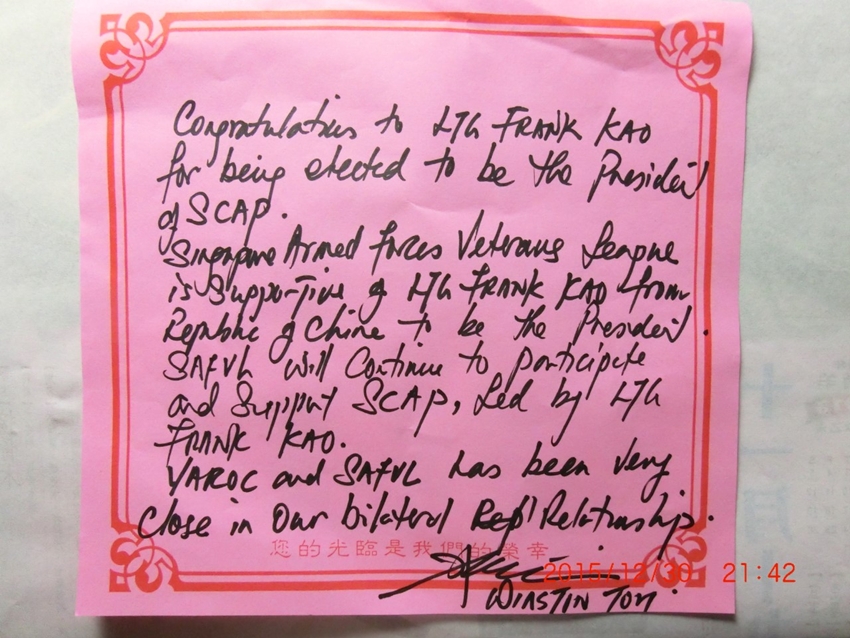 Congratulations to LTG FRANK KAO
for being elected to be the President
of SCAP.
Singapore Armed Forces Veterans League
is Supportive of LTG FRANK KAO from
Republic of China to be the President.
SAFVL will Continue to participate
and Support SCAP, Led by LTG
FRANK KAO.
VAROC and SAFVL has been very
Close in Our bilateral Relationship.
您的光臨是我們的榮幸
2015/12/30 21:42
WINSTIN TOH